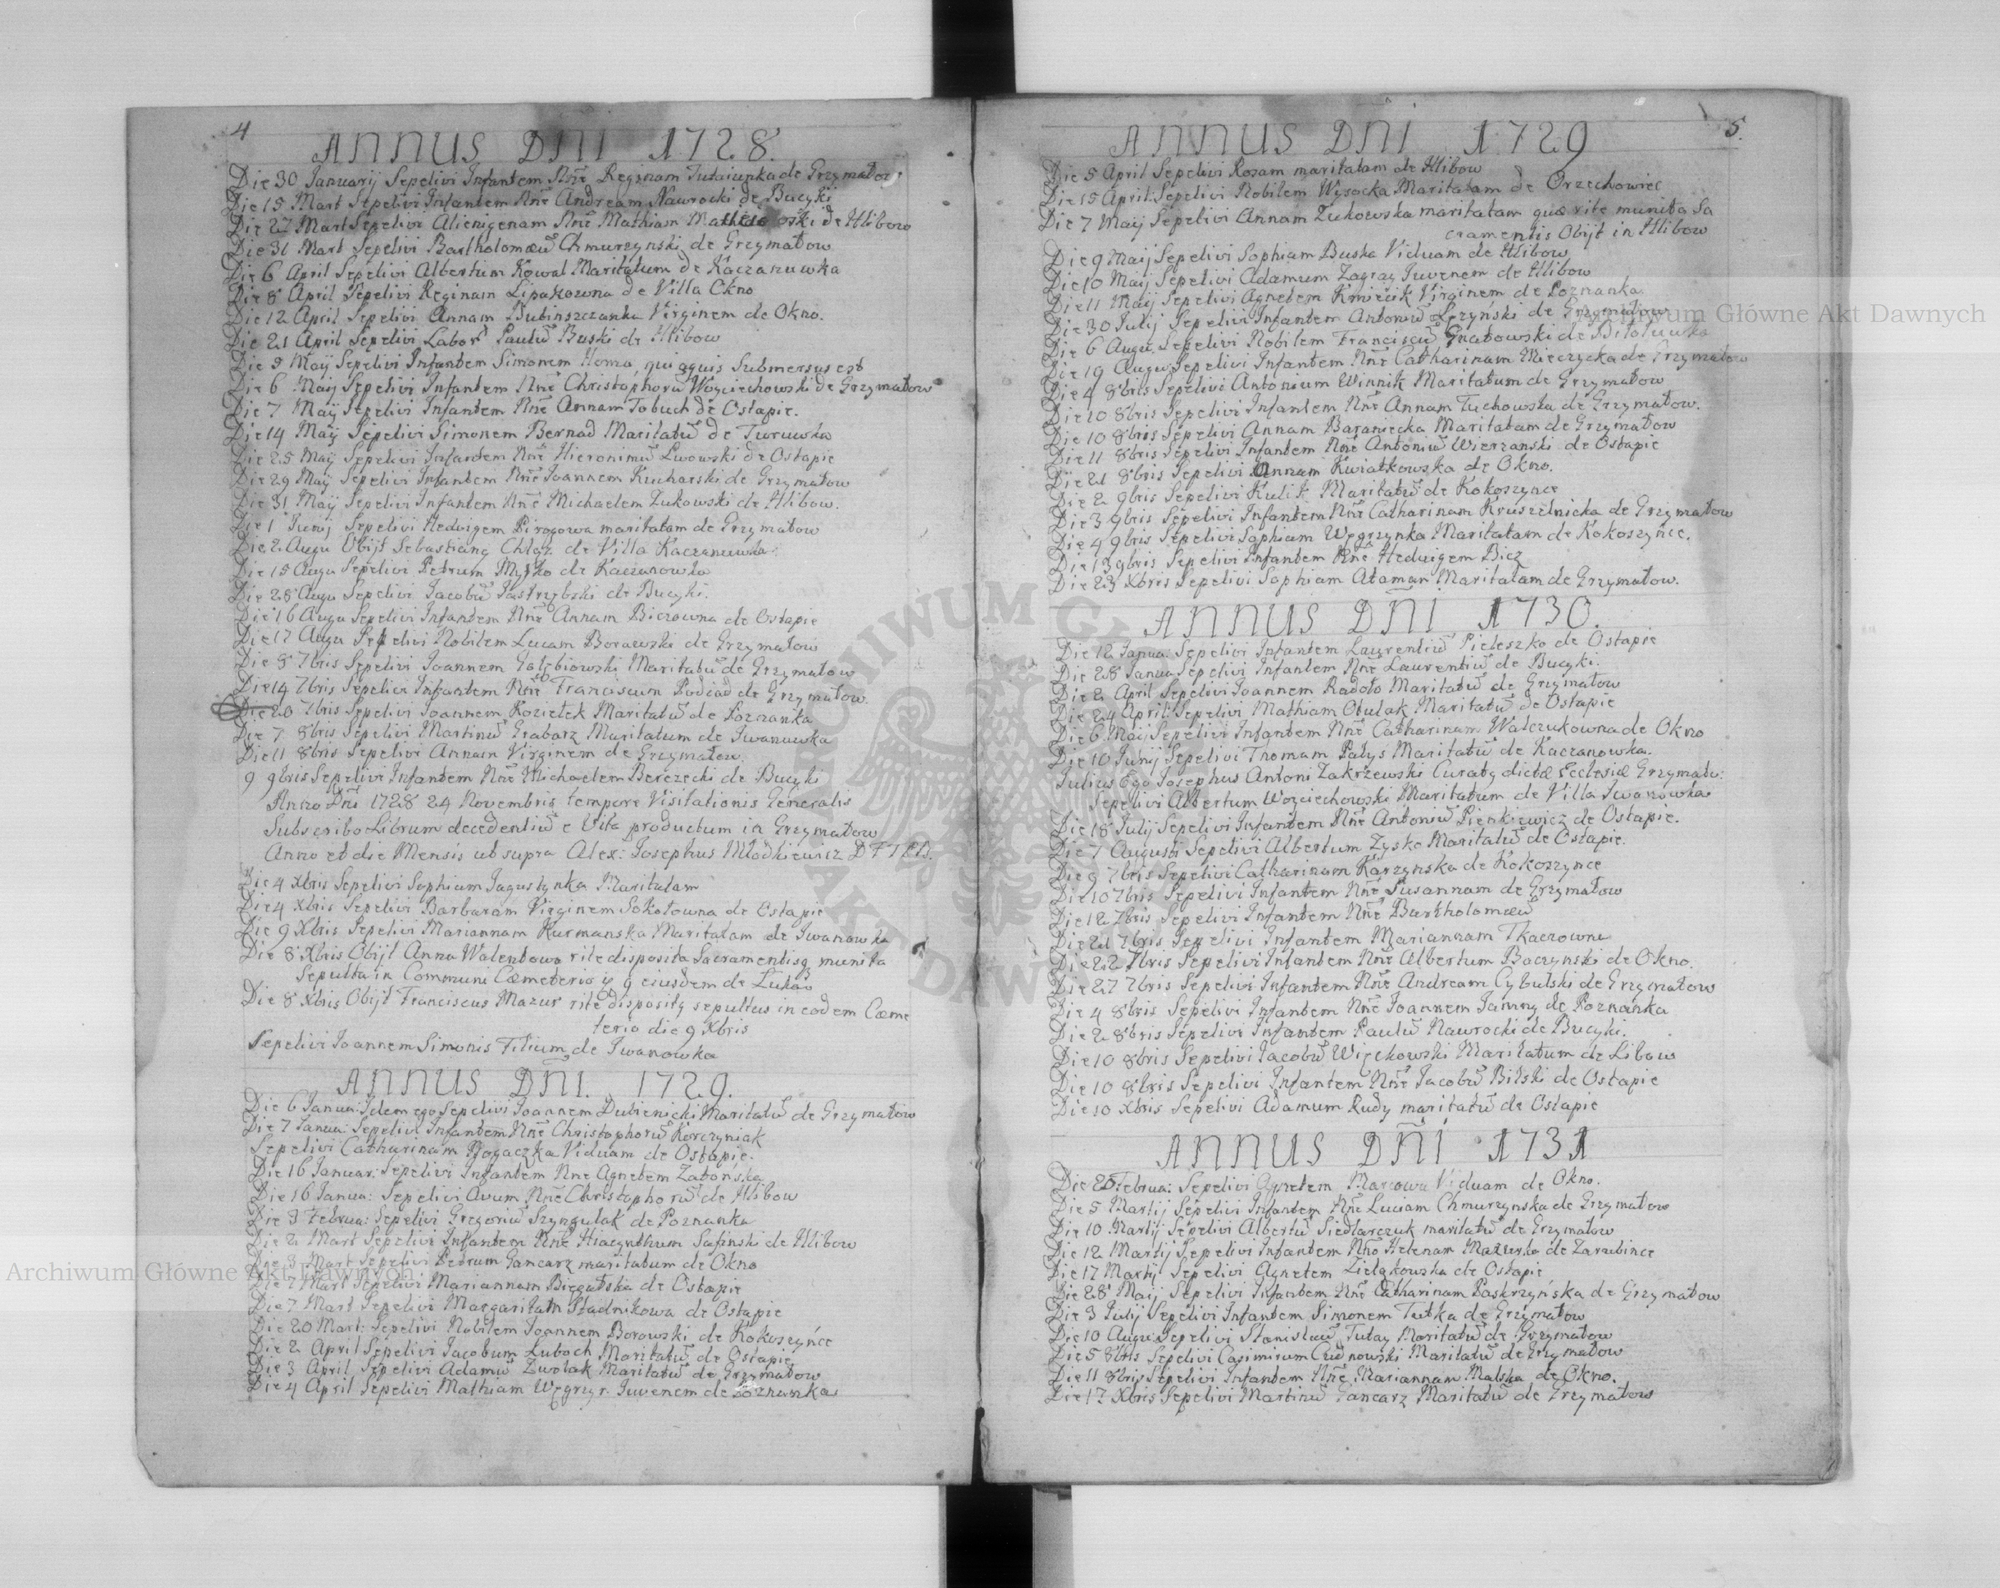 4
ANNUS DÑI 1728.
Die 30 Januarij Sepelivi Infantem Nne Reginam de Grzymałow
Die 15 Mart Sepelivi Infantem Nne Andream Nawrocki de Bucyki
Die 27 Mart Sepelivi Alienigenam Nne Mathiam de Hlibow
Die 31 Mart Sepelivi Bartholomæũ Chmurzynski de Grzymałow
Die 6 April Sepelivi Albertum Kowal Maritatum de Kaczanuwka
Die 8 April Sepelivi Reginam Lipakowna de Villa Okno
Die 12 April Sepelivi Annam Bubinszczanka Virginem de Okno.
Die 21 April Sepelivi Labor Paulũ Buski de Hlibow
Die 3 Maij Sepelivi Infantem Simonem Homa, qui aquis Submersus est
Die 6 Maij Sepelivi Infantem Nne Christophorũ Woyciechowski de Grzymałow
Die 7 Maij Sepelivi Infantem Nne Annam Tobuch de Ostapie.
Die 14 Maij Sepelivi Simonem Bernad Maritatũ de Turuwka
Die 25 Maij Sepelivi Infantem Nne Hieronimũ Lwowski de Ostapie
Die 29 Maij Sepelivi Infantem Nne Joannem Kucharski de Grzymałow
Die 31 Maij Sepelivi Infantem Nne Michaelem Zukowski de Hlibow.
Die 1 Junij Sepelivi Hedvigem Pirogowa maritatam de Grzymałow
Die 2 Augu Obijt Sebastiang de Villa Kaczanuwka
Die 15 Augu Sepelivi Petrum Myśko de Kaczanowka
Die 28 Augu Sepelivi Jacobũ Jastrzębski de Bucyki.
Die 16 Augu Sepelivi Infantem Nne Annam Biczowna de Ostapie
Die 17 Augu Sepelivi Nobilem Lucam Borawski de Grzymałow
Die 8 7bris Sepelivi Joannem Gołębiowski Maritatũ de Grzymałow
Die 14 7bris Sepelivi Infantem Nne Franciscum Podiad de Grzymałow.
Die 20 7bris Sepelivi Joannem Koziełek Maritatũ de Poznanka
Die 7 8bris Sepelivi Martinũ Grabarz Maritatum de Iwanuwka
Die 11 8bris Sepelivi Annam Virginem de Grzymałow.
9 9bris Sepelivi Infantem Nne Michaelem Berezecki de Bucyki
Anno Dñi 1728 24 Novembris tempore Visitationis Generalis
Subscribo Librum decedentiũ e Vita productum in Grzymałow
Anno et die Mensis ut supra Alex: Josephus Młodkiewicz
Die 4 Xbris Sepelivi Sophiam Jagustynka Maritatam
Die 4 Xbris Sepelivi Barbaram Virginem Sokołowna de Ostapie
Die 9 Xbris Sepelivi Mariannam Kurmanska Maritatam de Iwanowka
Die 8 Xbris Obijt Anna Walentowa rite disposita Sacramentisq munita
Sepulta in Communi Cæmeterio eiusdem de
Die 8 Xbris Obijt Franciscus Mazur rite disposity sepultus in eodem Cæme
terio die 9 Xbris
Sepelivi Joannem Simonis Filium de Iwanowka
ANNUS DÑI. 1729.
Die 6 Janua: Idem ego Sepelivi Joannem Dubienicki Maritatũ de Grzymałow
Die 7 Janua: Sepelivi Infantem Nne Christophorũ Korczyniak
Sepelivi Catharinam Rogaczka Viduam de Ostapie.
Die 16 Januar: Sepelivi Infantem Nne Agnetem Zabońska
Die 16 Janua: Sepelivi Avum Nne Christophorũ de Hlibow
Die 3 Februa: Sepelivi Gregoriũ Szyngulak de Poznanka
Die 2 Mart Sepelivi Infantem Nne Hiacynthum Safinski de Hlibow
Die 3 Mart Sepelivi Petrum Gancarz maritatum de Okno
Die 7 Mart Sepelivi Mariannam Biegańska de Ostapie
Die 7 Mart Sepelivi Margaritam Stadnikowa de Ostapie
Die 20 Mart: Sepelivi Nobilem Joannem Borowski de Kokoszyńce
Die 2 April Sepelivi Jacobum Luboch Maritatũ de Ostapie
Die 3 April Sepelivi Adamũ Zwolak Maritatũ de Grzymałow
Die 4 April Sepelivi Mathiam Węgrzyn Juvenem de Poznanka
5.
ANNUS DÑI 1729
Die 5 April Sepelivi Rosam maritatam de Hlibow
Die 15 April: Sepelivi Nobilem Wysocka Maritatam de Orzechowiec
Die 7 Maij Sepelivi Annam Zukowska maritatam quæ rite munita Sa
cramentis Obijt in Hlibow
Die 9 Maij Sepelivi Sophiam Buska Viduam de Hlibow
Die 10 Maij Sepelivi Adamum Zagray Juvenem de Hlibow
Die 11 Maij Sepelivi Agnetem Kmiécik Virginem de Poznanka
Die 30 Julij Sepelivi Infantem Antoniũ Łozynski de Grzymałow
Die 6 Augu. Sepelivi Nobilem Franciscũ Gnatowski de
Die 19 Augu Sepelivi Infantem Nne Catharinam Mierzycka de Grzymałow
Die 4 8bris Sepelivi Antonium Winnik Maritatum de Grzymałow
Die 10 8bris Sepelivi Infantem Nne Annam Tuchowska de Grzymałow.
Die 10 8bris Sepelivi Annam Baraniecka Maritatam de Grzymałow
Die 11 8bris Sepelivi Infantem Nne Antoniũ Wierzanski de Ostapie
Die 21 8bris Sepelivi Annam Kwiatkowska de Okno.
Die 2 9bris Sepelivi Kulik Maritatũ de Kokoszynce
Die 3 9bris Sepelivi Infantem Nne Catharinam Kruszelnicka de Grzymałow
Die 4 9bris Sepelivi Sophiam Węgrzynka Maritatam de Kokoszyńce.
Die 13 9bris Sepelivi Infantem Nne Hedvigem Bicz
Die 23 Xbris Sepelivi Sophiam Ataman Maritatam de Grzymałow.
ANNUS DÑI 1730.
Die 12 Janua: Sepelivi Infantem Laurentiũ Pieleszko de Ostapie
Die 28 Janua Sepelivi Infantem Nne Laurentiũ de Bucyki.
Die 2 April Sepelivi Joannem Radoło Maritatũ de Grzymałow
Die 24 April: Sepelivi Mathiam Obulak Maritatũ de Ostapie
Die 6 Maij Sepelivi Infantem Nne Catharinam Walczukowna de Okno
Die 10 Junij Sepelivi Thomam Patys Maritatũ de Kaczanowka.
Julius Ego Josephus Antoni Zakrzewski Curatg dictæ Ecclesiæ Grzymałv:
Sepelivi Albertum Woyciechowski Maritatum de Villa Iwanowka
Die 18 Julij Sepelivi Infantem Nne Antoniũ Pienkiewicz de Ostapie.
Die 7 Augusti Sepelivi Albertum Zysko Maritatũ de Ostapie.
Die 9 7bris Sepelivi Catharinam Karzynska de Kokoszynce
Die 10 7bris Sepelivi Infantem Nne Susannam de Grzymałow
Die 12 7bris Sepelivi Infantem Nne Bartholomæũ
Die 21 7bris Sepelivi Infantem Mariannam Tkaczowne
Die 22 7bris Sepelivi Infantem Nne Albertum Boczynski de Okno.
Die 27 7bris Sepelivi Infantem Nne Andream Cybulski de Grzymałow
Die 4 8bris Sepelivi Infantem Nne Joannem Jamny de Poznanka
Die 2 8bris Sepelivi Infantem Paulũ Nawrocki de Bucyki.
Die 10 8bris Sepelivi Jacobũ Więckowski Maritatum de Libow
Die 10 8bris Sepelivi Infantem Nne Jacobũ Bilski de Ostapie
Die 10 Xbris Sepelivi Adamum Rudy maritatũ de Ostapie
ANNUS DÑI 1731
Die 25 Februa: Sepelivi Agnetem Marcowa Viduam de Okno.
Die 5 Martij Sepelivi Infantem Nne Luciam Chmurzynska de Grzymałow
Die 10 Martij Sepelivi Albertũ Siedlarczuk maritatũ de Grzymałow
Die 12 Martij Sepelivi Infantem Nne Helenam Mazurko de Zarubince
Die 17 Martij Sepelivi Agnetem Zielątkowska de Ostapie
Die 28 Maij Sepelivi Infantem Nne Catharinam Paskrzyńska de Grzymałow
Die 3 Julij Sepelivi Infantem Simonem Tutka de Grzymałow
Die 10 Augu: Sepelivi Stanislaũ Tutay Maritatũ de Grzymałow
Die 5 8bris Sepelivi Casimirum Cudnowski Maritatũ de Grzymałow
Die 11 8bris Sepelivi Infantem Nne Mariannam Malska de Okno.
Die 17 Xbris Sepelivi Martinũ Gancarz Maritatũ de Grzymałow
Archiwum Główne Akt Dawnych
Archiwum Główne Akt Dawnych
ARCHIWUM GŁÓWNE AKT DAWNYCH